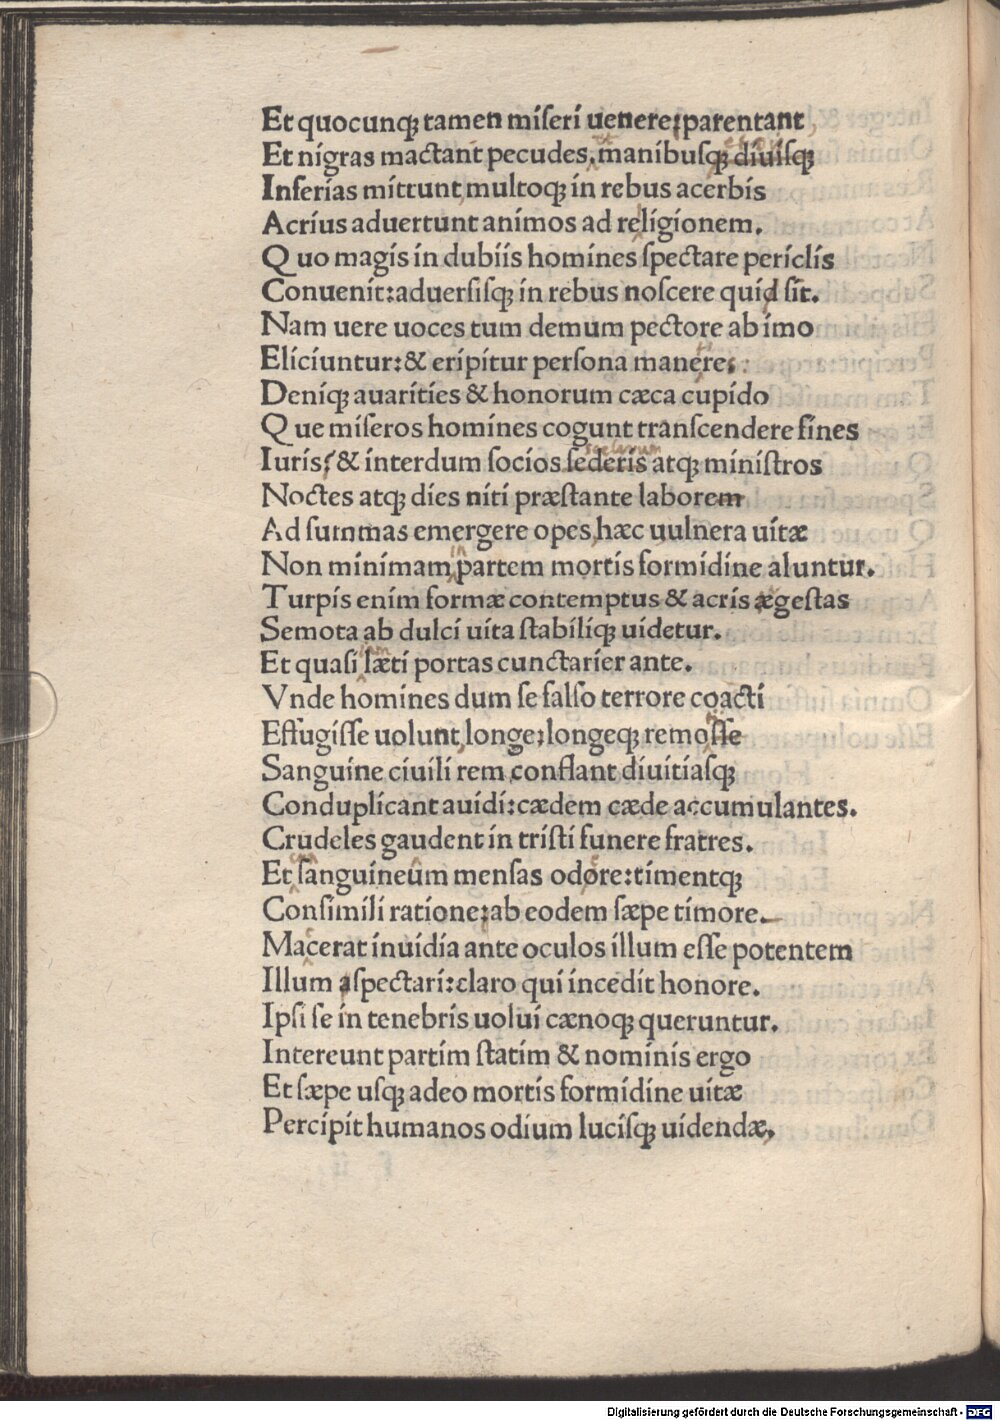 Et quocunqꝫ tamen miſeri uenere:parentant
Et nigras mactant pecudes.manibuſqꝫ diuiſqꝫ
Inferias mittunt,multoqꝫ in rebus acerbis
Acrius aduertunt animos ad religionem.
Quo magis in dubiis homines ſpectare periclis
Conuenit:aduerſiſqꝫ in rebus noſcere quid ſit.
Nam uere uoces tum demum pectore ab imo
Eliciuntur:& eripitur perſona manere:
Deniqꝫ auarities & honorum cæca cupido
Que miſeros homines cogunt tranſcendere fines
Iuris:& interdum ſocios ſederis atqꝫ miniſtros
Noctes atqꝫ dies niti præſtante laborem
Ad ſummas emergere opes,hæc uulnera uitæ
Non minimam partem mortis formidine aluntur.
Turpis enim formæ contemptus & acris ægeſtas
Semota ab dulci uita ſtabiliqꝫ uidetur.
Et quaſi læti portas cunctarier ante.
Vnde homines dum ſe falſo terrore coacti
Effugiſſe uolunt,longe:longeqꝫ remoſſe
Sanguine ciuili rem conflant diuitiaſqꝫ
Conduplicant auidi:cædem cæde accumulantes.
Crudeles gaudent in triſti funere fratres.
Et ſanguineum menſas odore:timentqꝫ
Conſimili ratione:ab eodem ſæpe timore.
Macerat inuidia ante oculos illum eſſe potentem
Illum aſpectari:claro qui incedit honore.
Ipſi ſe in tenebris uolui cænoqꝫ queruntur.
Intereunt partim ſtatim & nominis ergo
Et ſæpe uſqꝫ adeo mortis formidine uitæ
Percipit humanos odium luciſqꝫ uidendæ,
Digitalisierung gefördert durch die Deutsche Forschungsgemeinschaft - DFG